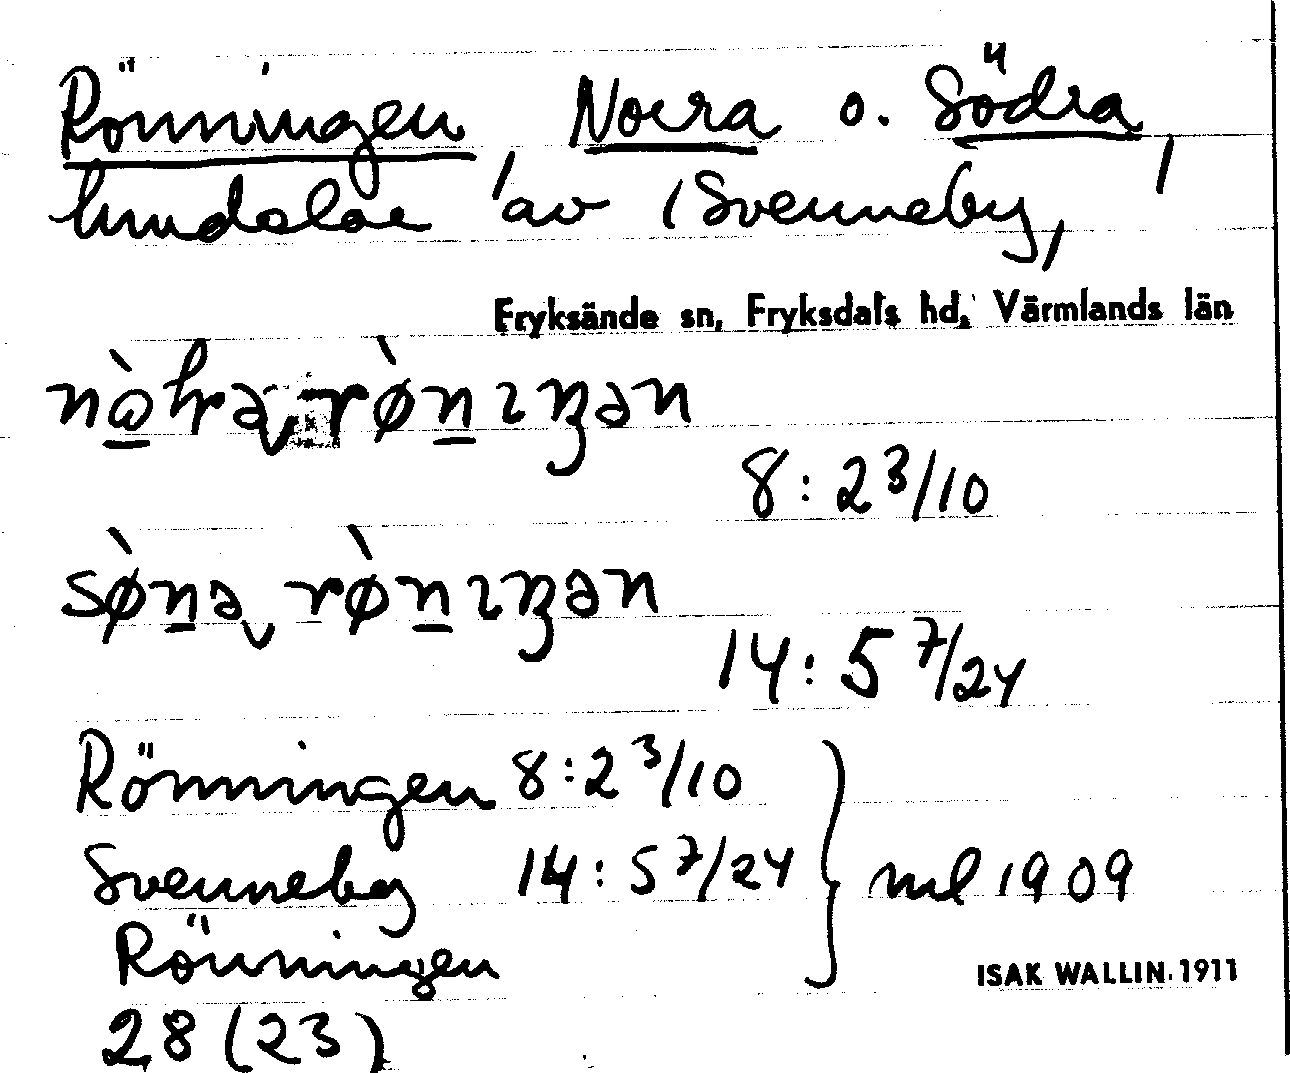 Rönningen, Norra o. Södra,
hemdelar av (Svenneby,
Fryksände sn, Fryksdals hd, Värmlands län
8:2 3/10
14:5 7/24
Rönningen 8:2 3/10
Svenneby 14:5 7/24 } ml 1909
Rönningen
ISAK WALLIN 1911
28 (23)